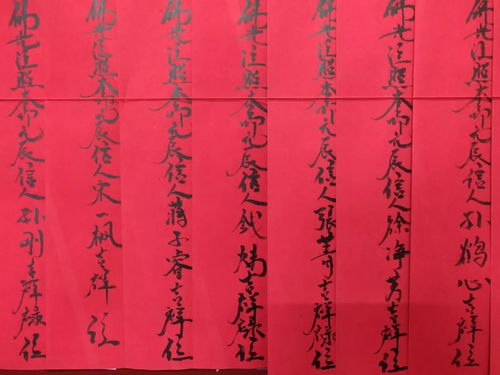 佛光注照本命元辰信人孙鹤心吉祥位
佛光注照本命元辰信人徐净芳吉祥位
佛光注照本命元辰信人張菁吉祥禄位
佛光注照本命元辰信人吉祥禄位
佛光注照本命元辰信人蒋子睿吉祥位
佛光注照本命元辰信人宋一枫吉祥位
佛光注照本命元辰信人孙刚吉祥禄位